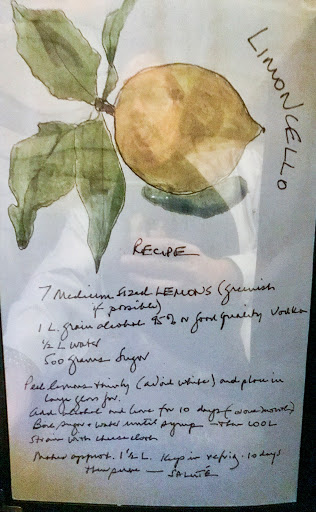 LIMONCELLO
RECIPE
7 Medium Sized LEMONS (greenish
if possible)
1 L. grain alcohol 95% or good quality Vodka
1/2 L water
500 grams Sugar
Peel lemons thinly (avoid white) and place in
large glass jar.
Add alcohol and leave for 10 days
Boil sugar + water until syrup - then COOL
Strain with cheesecloth
Makes approx. 1 1/2 L. Keep in refrig. 10 days
then serve — SALUTÉ